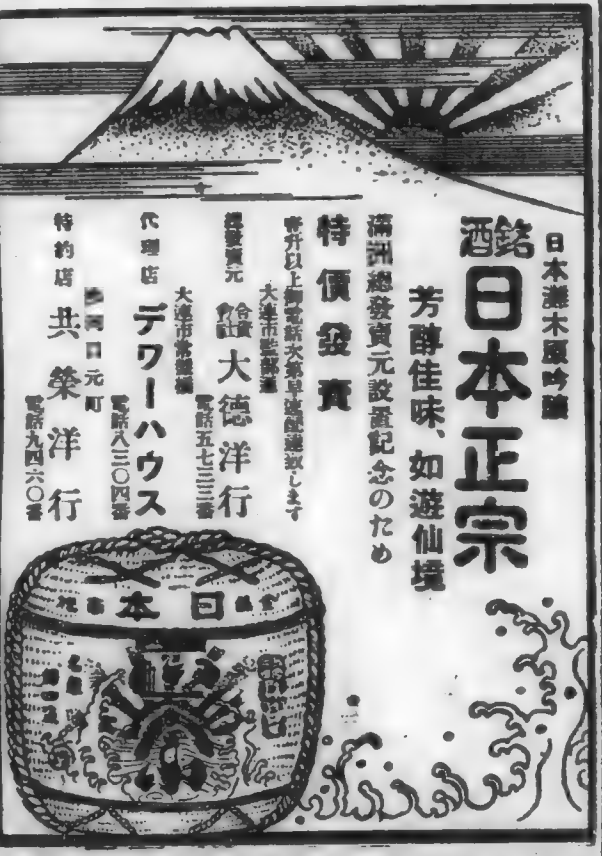 日本灘木原吟醸
銘酒
日本正宗
芳醇佳味、如遊仙境
滿洲總發賣元設置記念のため
特價發賣
壹升以上御電話次第早速配達致します
大連市監部通
總發賣元 合資會社 大德洋行
電話五七三三番
大連市常盤橋
代理店 デワーハウス
電話八三〇四番
元町
特約店 共榮洋行
電話九四六〇番
日本